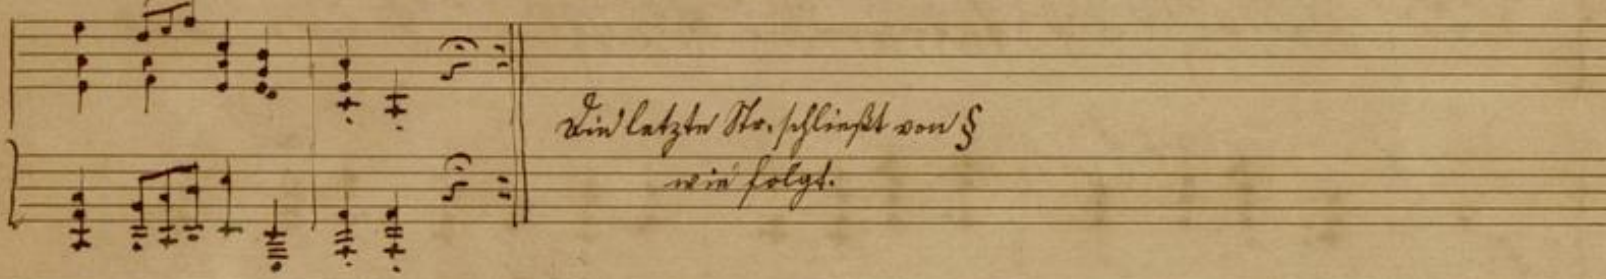 Die letzte Str. schließt von §
wie folgt.